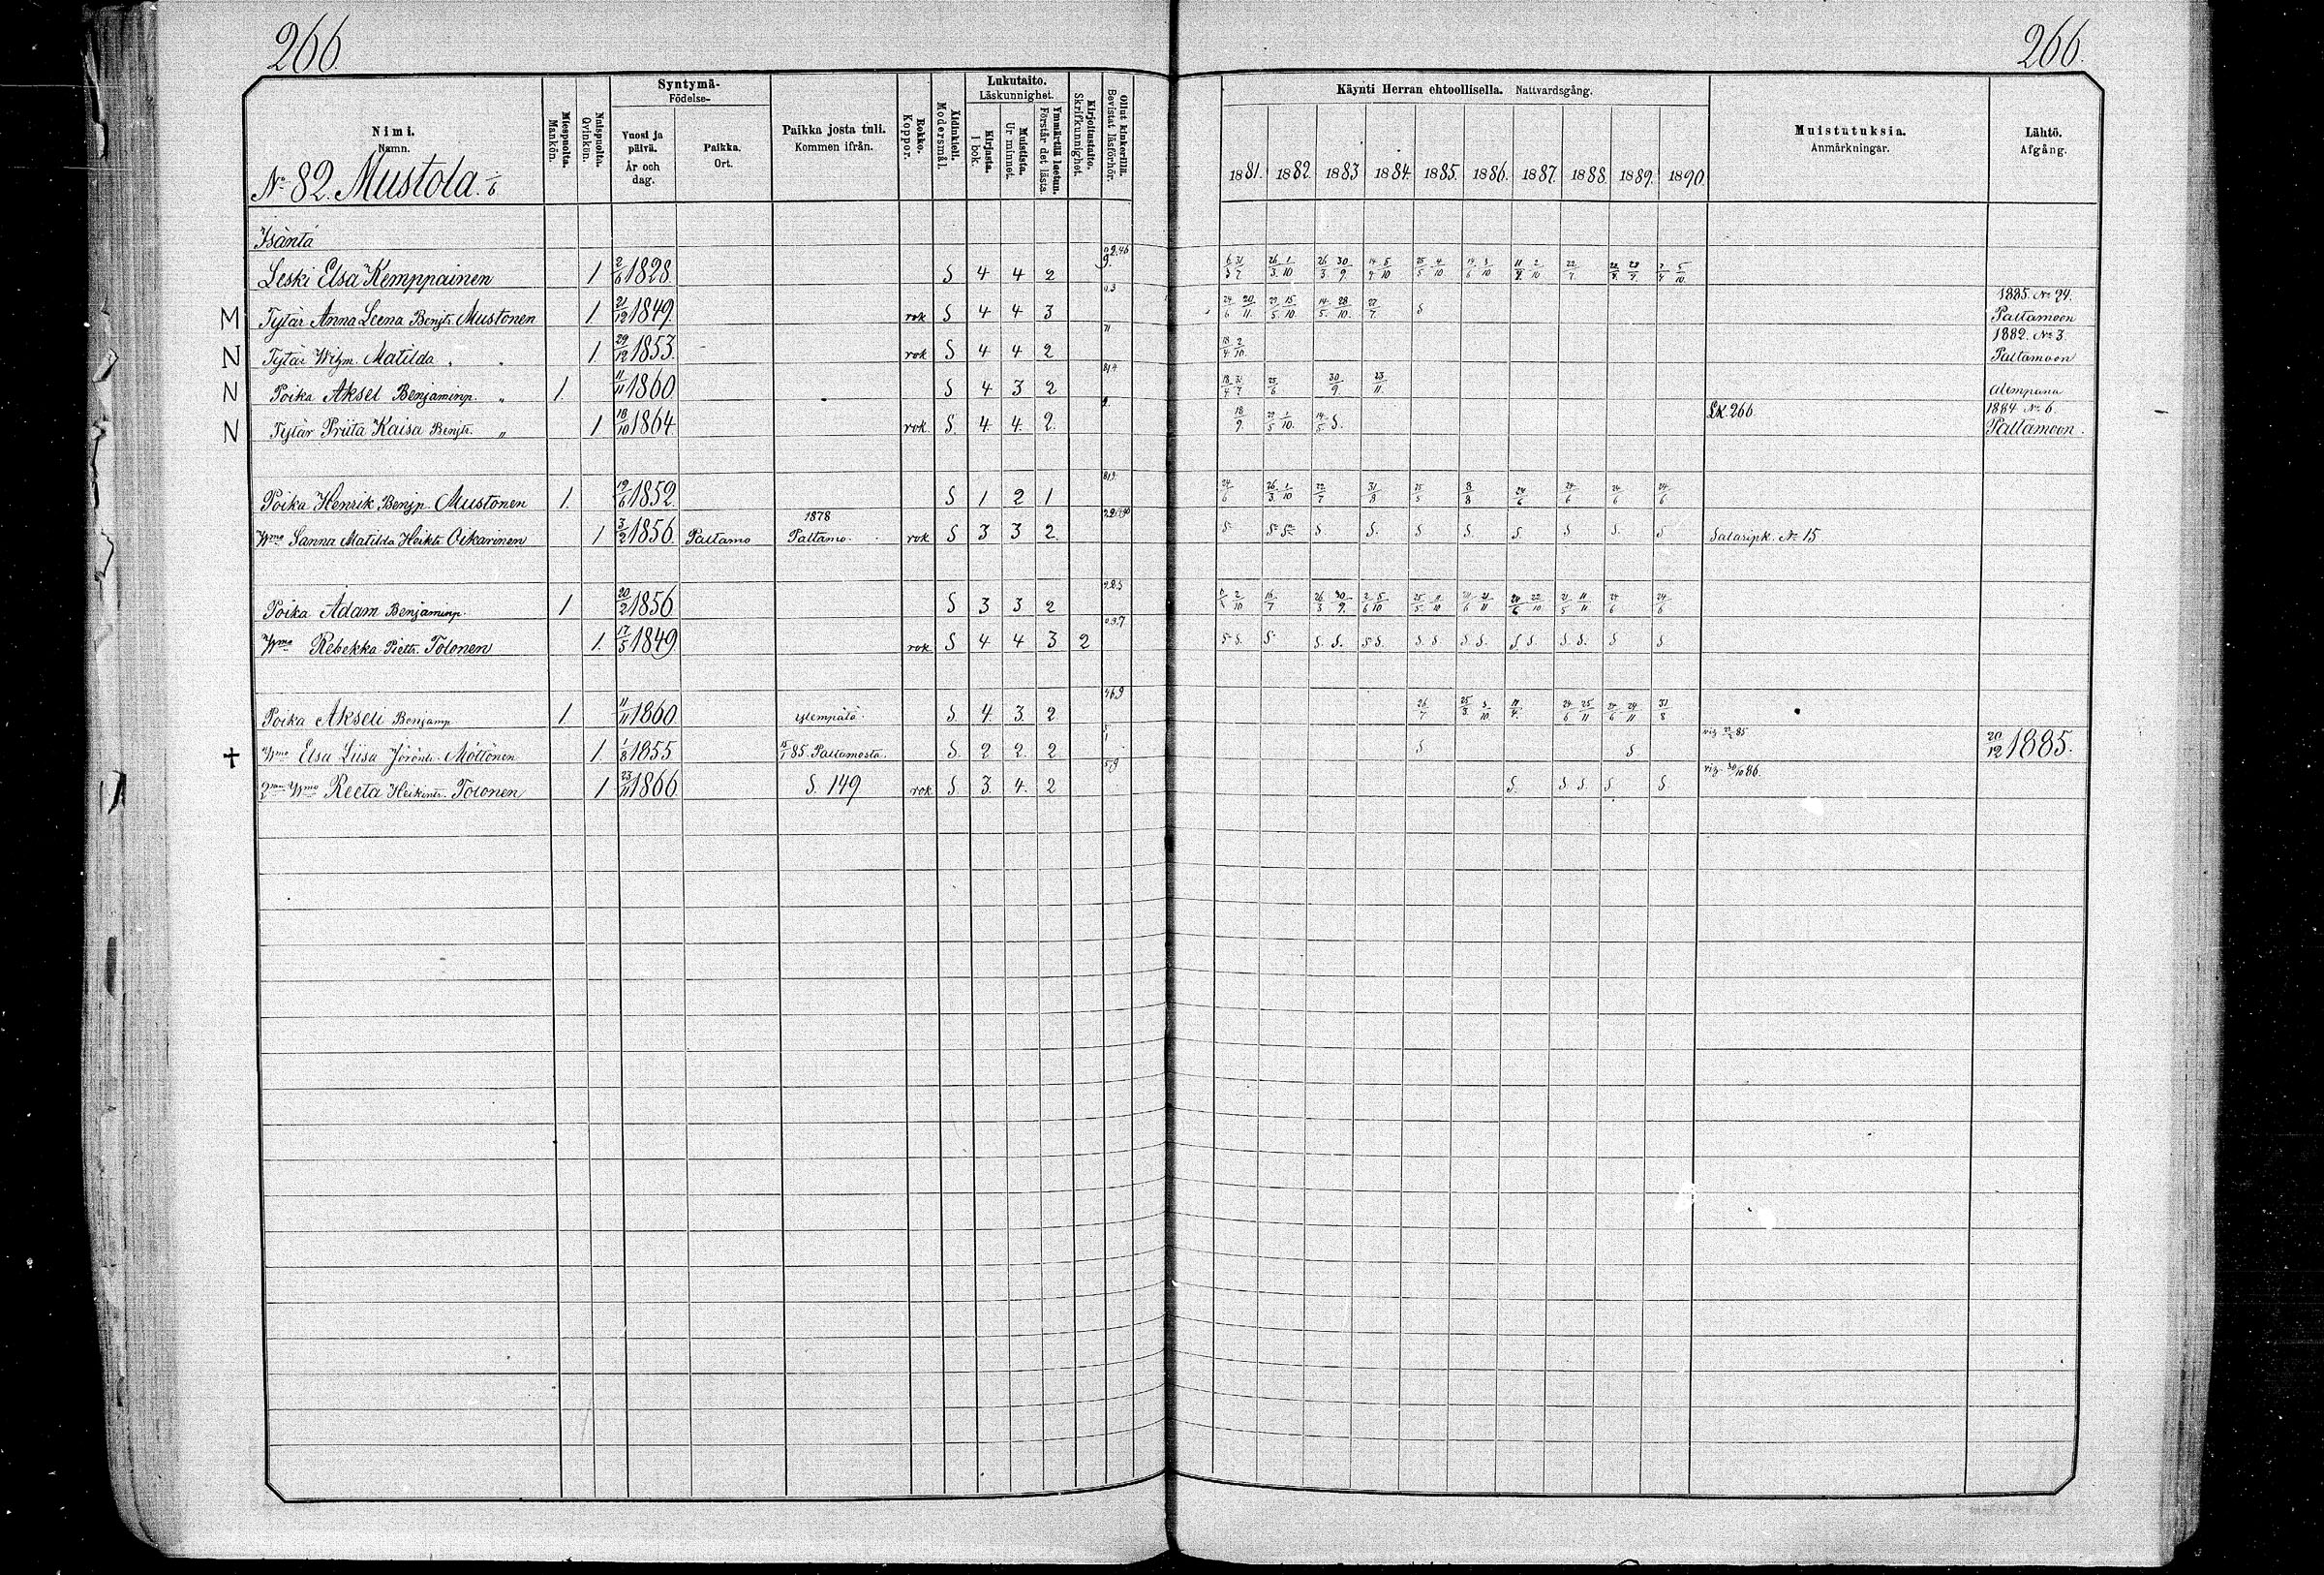 266.
266.
Nimi.
Namn.
No 82. Mustola. 1/6
Miespuolta.
Mankön.
Naispuolta.
Qvinkön.
Syntymä-
Födelse-
Vuosi ja päivä.
År och dag.
Paikka.
Ort.
Paikka josta tuli.
Kommen ifrån.
Rokko.
Koppor.
Äidinkieli.
Modersmål.
Lukutaito.
Läskunnighet.
Kirjasta.
I bok.
Muistista.
Ur minnet.
Ymmärtää luetun.
Förstår det lästa.
Kirjoitustaito.
Skrifkunnighet.
Ollut kinkerillä.
Bevistat läsförhör.
Käynti Herran ehtoollisella. Nattvardsgång.
1881. 1882. 1883 1884. 1885. 1886. 1887. 1888. 1889. 1890.
Muistutuksia.
Anmärkningar.
Lähtö.
Afgång.
Isäntä
Leski Elsa Kemppainen 1 2/6 1828. S 4 4 2
M Tytär Anna Leena Benjt. Mustonen 1 21/12 1849. rok S 4 4 3 24/6 20/11. 29/5 15/10. 14/5. 28/10. 27/7. S 1885. No 24. Paltamoon
N Tytär Wilhm. Matilda „ „ 1 29/12 1853. rok S 4 4 2 18/4. 2/10. 1882. No 3. Paltamoon
N Poika Aksel Benjaminp. „ 1. 11/11 1860. S 4 3 2 25/6 30/9. 23/11. Alempana
N Tytär Priita Kaisa Benjt. „ 1 18/10 1864 rok. S. 4 4. 2. 18/9. 29/5 1/10. 14/5. S. LK. 266 1884. No 6. Paltamoon.
Poika Henrik Benjp. Mustonen 1. 19/6 1852. S 1 2 1 24/6 26/3. 1/10 22/7 31/8 25/5 8/8 24/6 24/6 24/6 24/6
Wmo Sanna Matilda Heikt. Oikarinen 1 3/2 1856. Paltamo 1878 Paltamo. rok S 3 3 2. S S S S S. S S. S. S S. S Satasipk. No 15.
Poika Adam Benjaminp. 1 20/2 1856 S 3 3 2 2/10 16/7 26/3 30/9. 2/6 5/10 25/5 11/10 21/6 21/11 24/6 22/10 21/5 11/11 24/6 24/6
Wmo Rebekka Piett. Tolonen 1. 17/5 1849 rok S 4 4 3 2 S. S. S S. S. S S. S S. S S. S S. S S. S S
Poika Akseli Benjamp. 1 11/11 1860. Ylempätä S. 4. 3. 2 26/7 25/3. 3/10 11/4. 24/6 25/11 24/6 24/11 31/8
† Wmo Elsa Liisa Jöränt. Möttönen 1. 1/8 1855. 15/1 85. Paltamosta. S. 2 2. 2 S S 20/12 1885.
2nen Wmo Reeta Heikint. Tolonen 1 23/11 1866 S. 149 rok S. 3. 4. 2 S. S S S S. vig. 30/10 86.